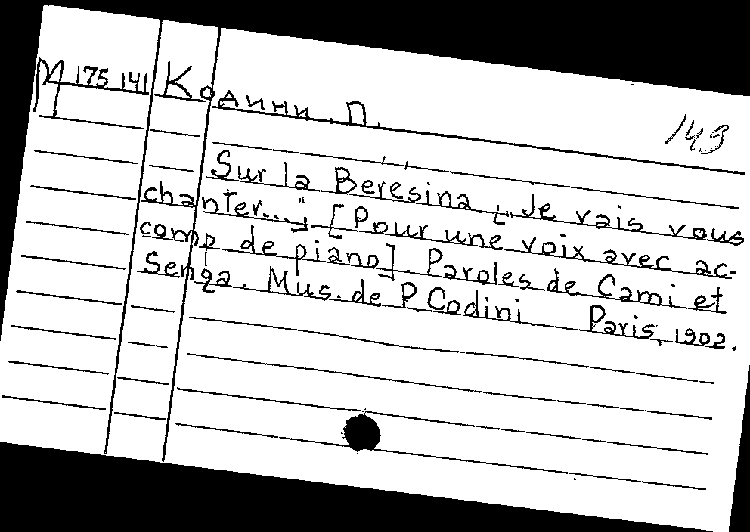 М 175 141 Кодини. П.
149
Sur la Beresina ["Je vais vous
chanter..."] [Pour une voix avec ac-
comp de piano]. Paroles de Cami et
Senga. Mus. de P Codini Paris, 1902.